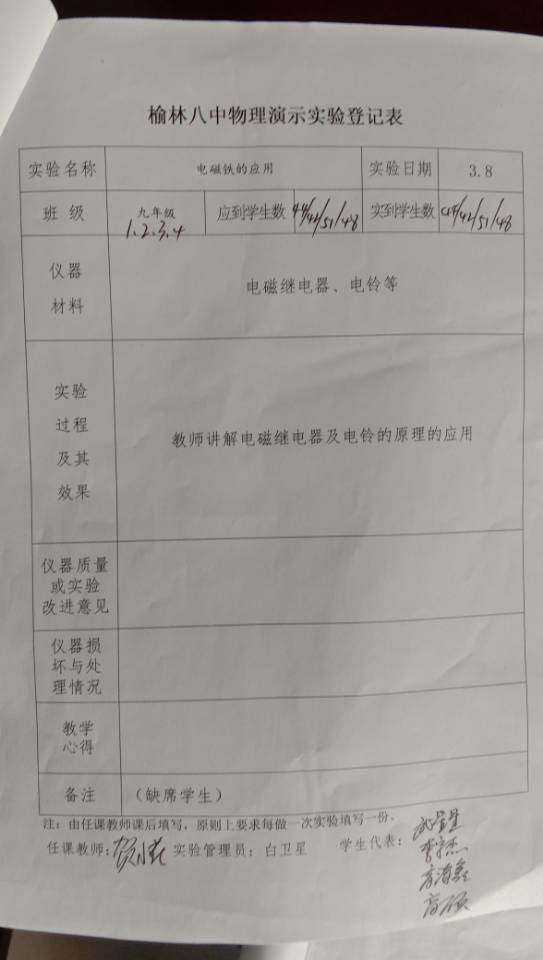 榆林八中物理演示实验登记表
实验名称 电磁铁的应用 实验日期 3.8
班 级 九年级 1.2.3.4 应到学生数 44/42/51/48 实到学生数 44/42/51/48
仪器
材料
电磁继电器、电铃等
实验
过程
及其
效果
教师讲解电磁继电器及电铃的原理的应用
仪器质量
或实验
改进意见
仪器损
坏与处
理情况
教学
心得
备注 （缺席学生）
注：由任课教师课后填写，原则上要求每做一次实验填写一份。
任课教师： 实验管理员：白卫星 学生代表：